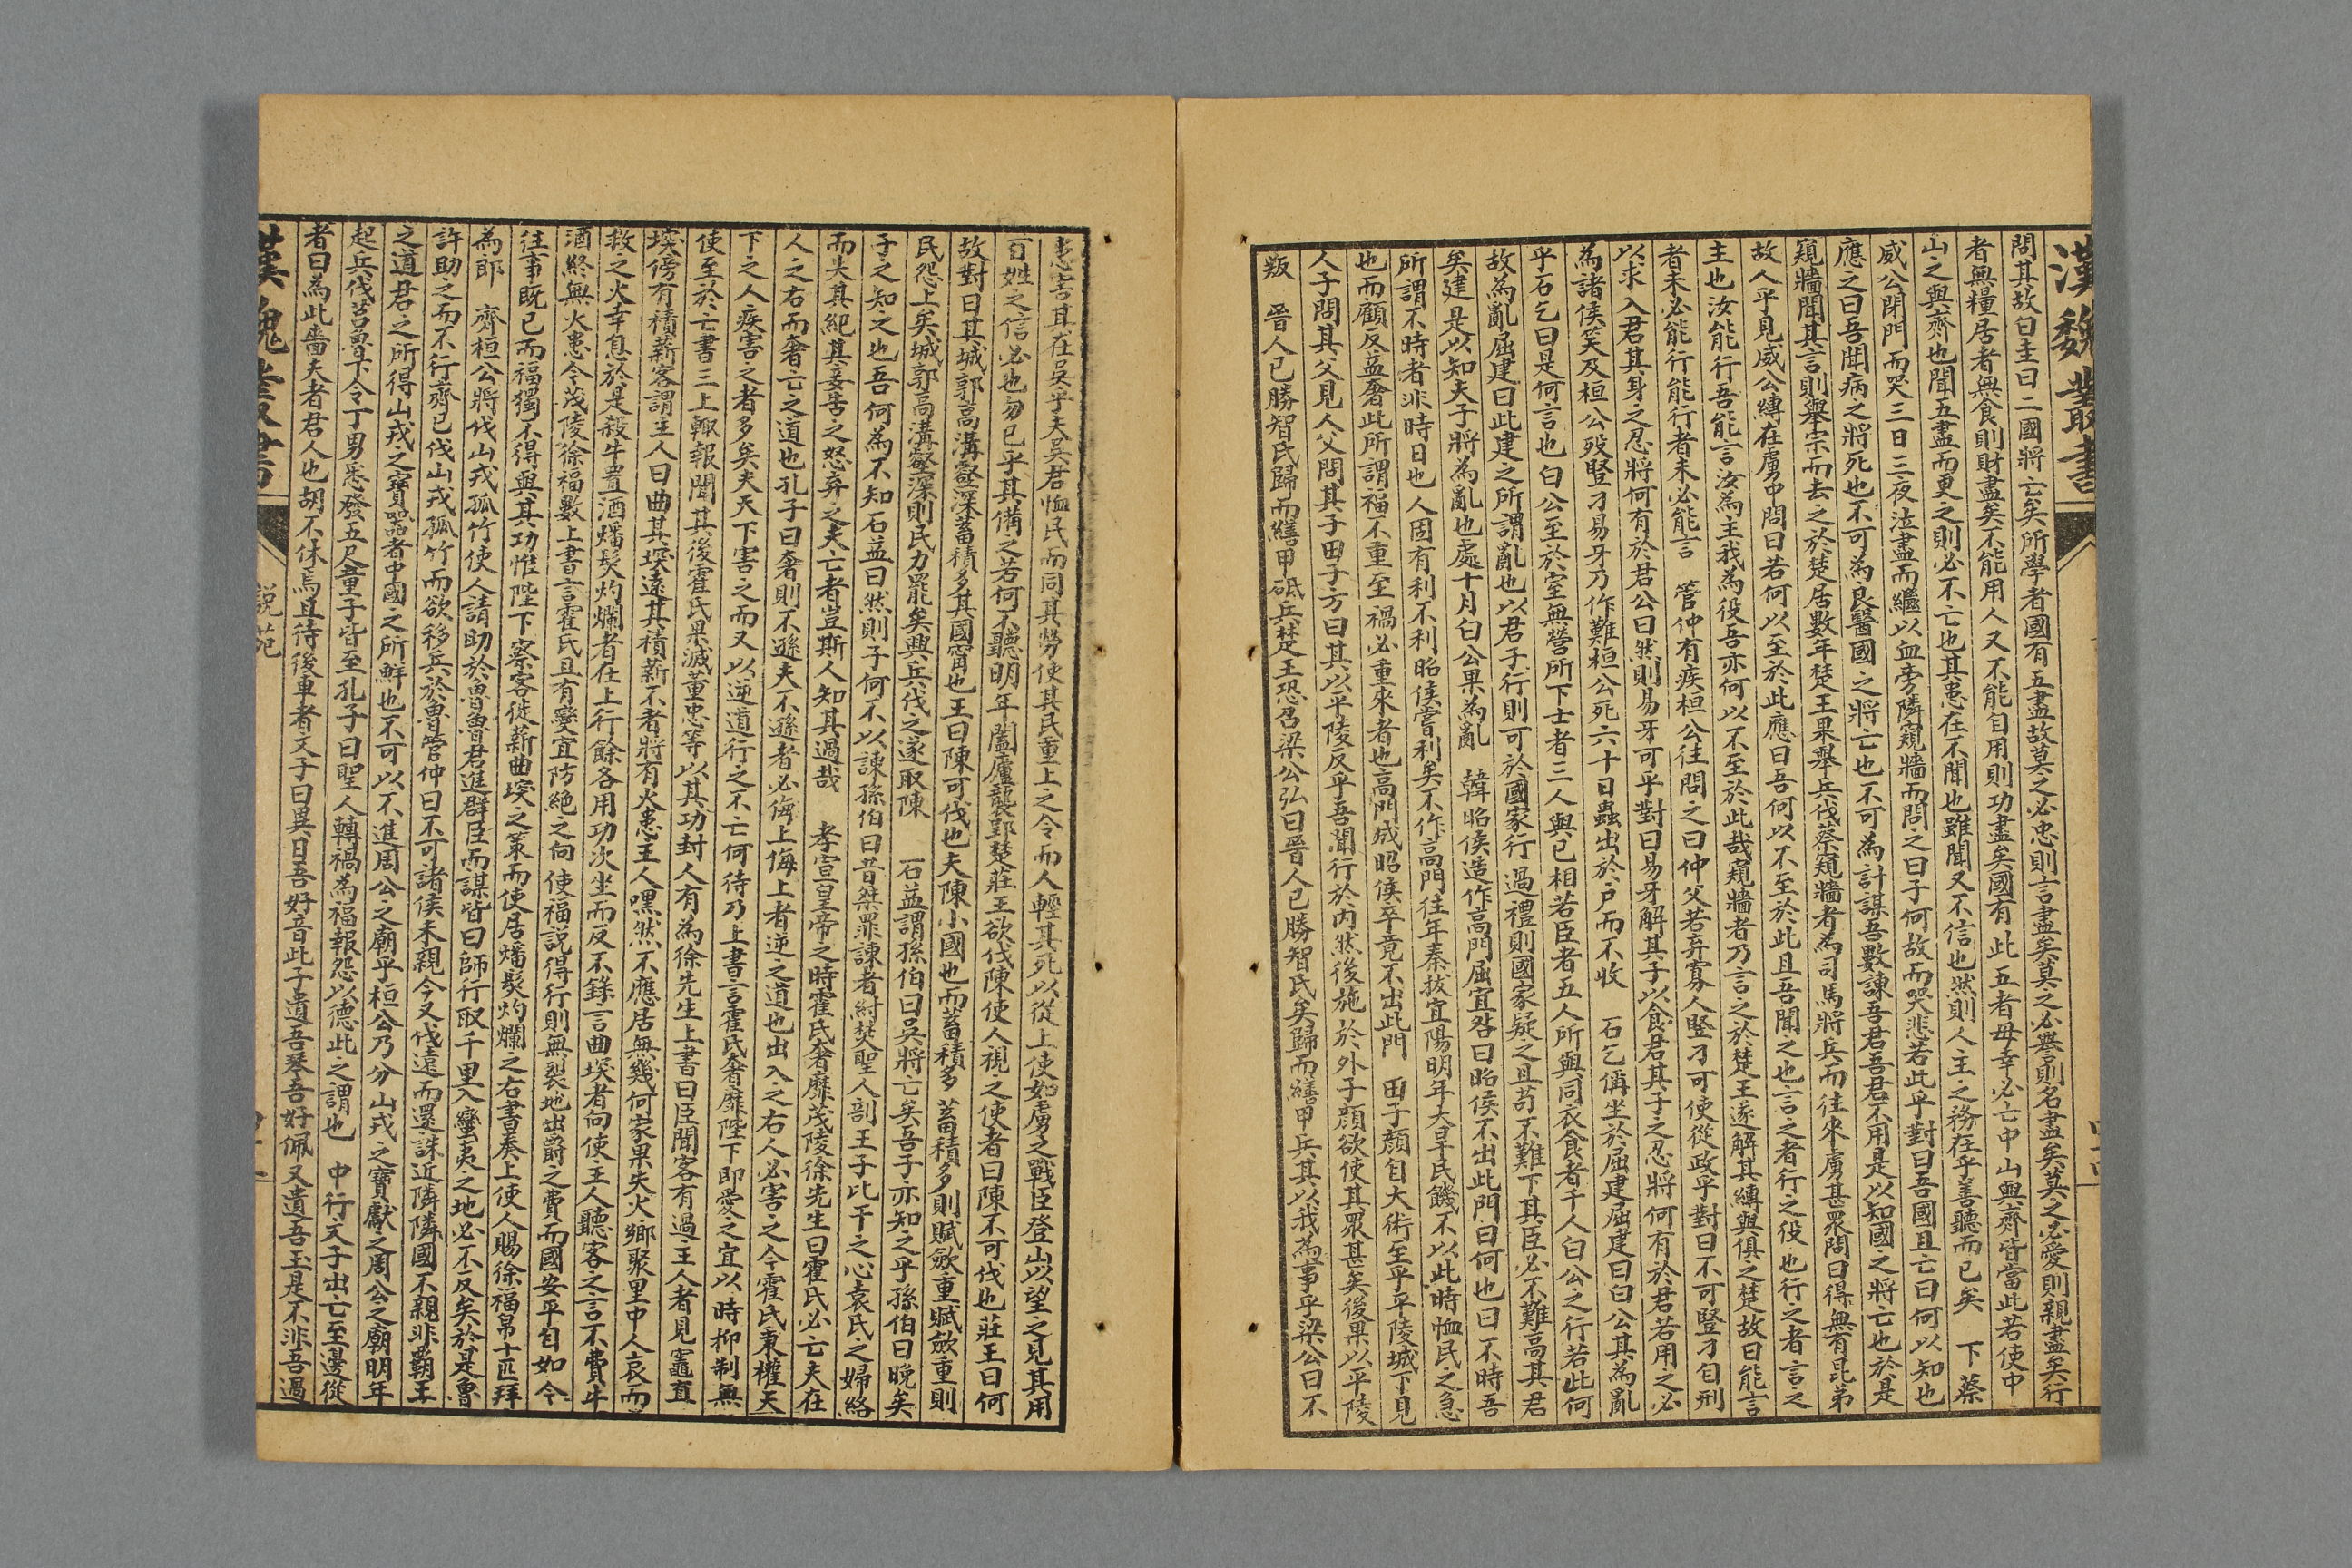 漢魏叢書
問其故曰主曰二國將亡矣所學者國有五盡故莫之必忠則言盡矣莫之必譽則名盡矣莫之必愛則親盡矣行
者無糧居者無食則財盡矣不能用人又不能自用則功盡矣國有此五者毋幸必亡中山與齊皆當此若使中
山之與齊也聞五盡而更之則必不亡也其患在不聞也雖聞又不信也然則人主之務在乎善聽而已矣　下蔡
威公閉門而哭三日三夜泣盡而繼以血旁隣窺牆而問之曰子何故而哭悲若此乎對曰吾國且亡曰何以知也
應之曰吾聞病之將死也不可為良醫國之將亡也不可為計謀吾數諫吾君吾君不用是以知國之將亡也於是
窺牆聞其言則舉宗而去之於楚居數年楚王果舉兵伐蔡窺牆者為司馬將兵而往來虜甚眾問曰得無有昆弟
故人乎見威公縛在虜中問曰若何以至於此應曰吾何以不至於此且吾聞之也言之者行之役也行之者言之
主也汝能行吾能言汝為主我為役吾亦何以不至於此哉窺牆者乃言之於楚王遂解其縛與俱之楚故曰能言
者未必能行能行者未必能言　管仲有疾桓公往問之曰仲父若弃寡人豎刁可使從政乎對曰不可豎刁自刑
以求入君其身之忍將何有於君公曰然則易牙可乎對曰易牙解其子以食君其子之忍將何有於君若用之必
為諸侯笑及桓公歿豎刁易牙乃作難桓公死六十日蟲出於戶而不收　石乞偁坐於屈建屈建曰白公其為亂
乎石乞曰是何言也白公至於室無營所下士者三人與已相若臣者五人所與同衣食者千人白公之行若此何
故為亂屈建曰此建之所謂亂也以君子行則可於國家行過禮則國家疑之且苟不難下其臣必不難高其君
矣建是以知夫子將為亂也處十月白公果為亂　韓昭侯造作高門屈宜咎曰昭侯不出此門曰何也曰不時吾
所謂不時者非時日也人固有利不利昭侯嘗利矣不作高門往年秦拔宜陽明年大旱民饑不以此時恤民之急
也而顧反益奢此所謂福不重至禍必重來者也高門成昭侯卒竟不出此門　田子顏自大術至乎平陵城下見
人子問其父見人父問其子田子方曰其以平陵反乎吾聞行於內然後施於外子顏欲使其眾甚矣後果以平陵
叛　晉人已勝智氏歸而繕甲砥兵楚王恐召梁公弘曰晉人已勝智氏矣歸而繕甲兵其以我為事乎梁公曰不
患害其在吳乎夫吳君恤民而同其勞使其民重上之令而人輕其死以從上使如虜之戰臣登山以望之見其用
百姓之信必也勿已乎其備之若何不聽明年闔廬襲郢楚莊王欲伐陳使人視之使者曰陳不可伐也莊王曰何
故對曰其城郭高溝壑深蓄積多其國甯也王曰陳可伐也夫陳小國也而蓄積多蓄積多則賦斂重賦斂重則
民怨上矣城郭高溝壑深則民力罷矣興兵伐之遂取陳　石益謂孫伯曰吳將亡矣吾子亦知之乎孫伯曰晚矣
子之知之也吾何為不知石益曰然則子何不以諫孫伯曰昔桀罪諫者紂焚聖人剖王子比干之心袁氏之婦絡
而失其紀其妾告之怒弃之夫亡者豈斯人知其過哉　孝宣皇帝之時霍氏奢靡茂陵徐先生曰霍氏必亡夫在
人之右而奢亡之道也孔子曰奢則不遜夫不遜者必侮上侮上者逆之道也出入之右人必害之今霍氏秉權天
下之人疾害之者多矣夫天下害之而又以逆道行之不亡何待乃上書言霍氏奢靡陛下即愛之宜以時抑制無
使至於亡書三上輒報聞其後霍氏果滅董忠等以其功封人有為徐先生上書曰臣聞客有過主人者見竈直
堗傍有積薪客謂主人曰曲其堗遠其積薪不者將有火患主人嘿然不應居無幾何家果失火鄉聚里中人哀而
救之火幸息於是殺牛置酒燔髮灼爛者在上行餘各用功次坐而反不錄言曲堗者向使主人聽客之言不費牛
酒終無火患今茂陵徐福數上書言霍氏且有變宜防絕之向使福說得行則無裂地出爵之費而國安平自如今
往事既已而福獨不得與其功惟陛下察客徙薪曲堗之策而使居燔髮灼爛之右書奏上使人賜徐福帛十匹拜
為郎　齊桓公將伐山戎孤竹使人請助於魯魯君進群臣而謀皆曰師行取千里入蠻夷之地必不反矣於是魯
許助之而不行齊已伐山戎孤竹而欲移兵於魯管仲曰不可諸侯未親今又伐遠而還誅近隣隣國不親非霸王
之道君之所得山戎之寶器者中國之所鮮也不可以不進周公之廟乎桓公乃分山戎之寶獻之周公之廟明年
起兵伐莒魯下令丁男悉發五尺童子皆至孔子曰聖人轉禍為福報怨以德此之謂也　中行文子出亡至邊從
者曰為此嗇夫者君人也胡不休焉且待後車者文子曰異日吾好音此子遺吾琴吾好佩又遺吾玉是不非吾過
漢魏叢書
說苑